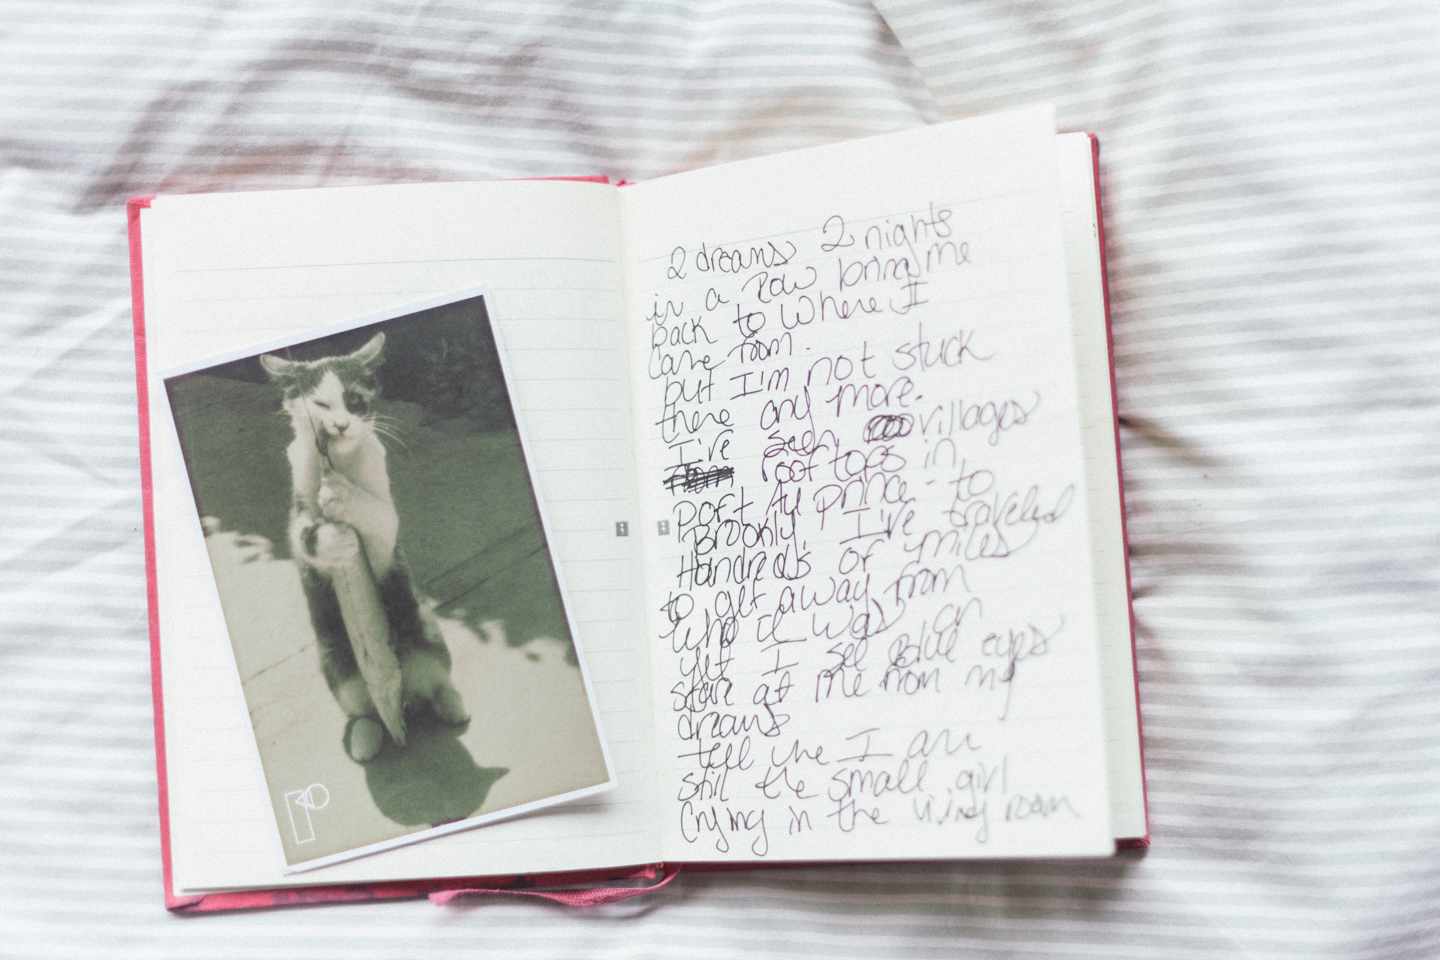 2 dreams 2 nights
in a row bring me
back to where I
came from.
but I'm not stuck
there any more.
I've seen villages
roof tops in
port Au prince - to
Brooklyn I've traveled
Hundreds of miles
to get away from
who I was or
yet I see Blue eyes
stare at me from my
dreams
tell me I am
still the small girl
crying in the living room